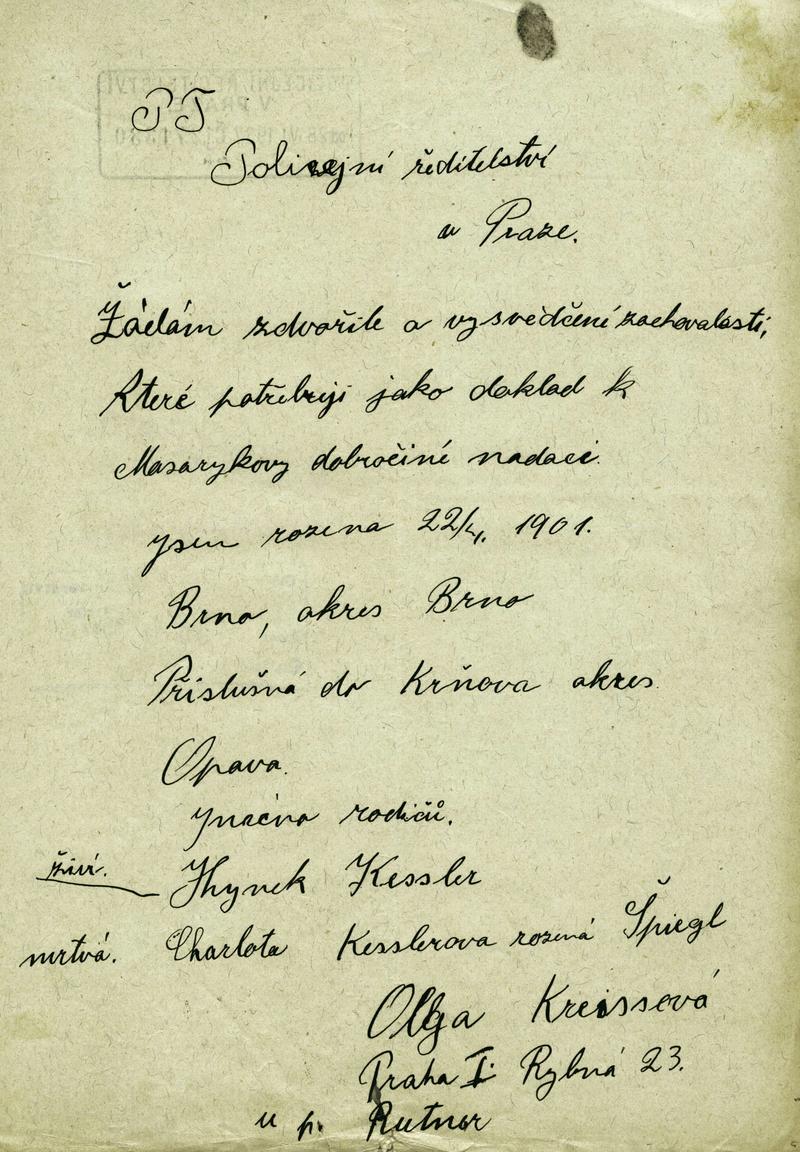 PT
Policejní ředitelství
v Praze.
Žádám zdvořile o vysvědčení zachovalosti,
které potřebuji jako doklad k
Masarykovy dobročiné nadaci.
Jsem rozena 22/4. 1901.
Brno, okres Brno
Příslušná do Krňova okres
Opava.
Jména rodičů.
živí. Jhynek Kessler
mrtvá. Charlota Kesslerova rozená Špiegl
Olga Kreissová
Praha I. Rybná 23.
u p. Rutner